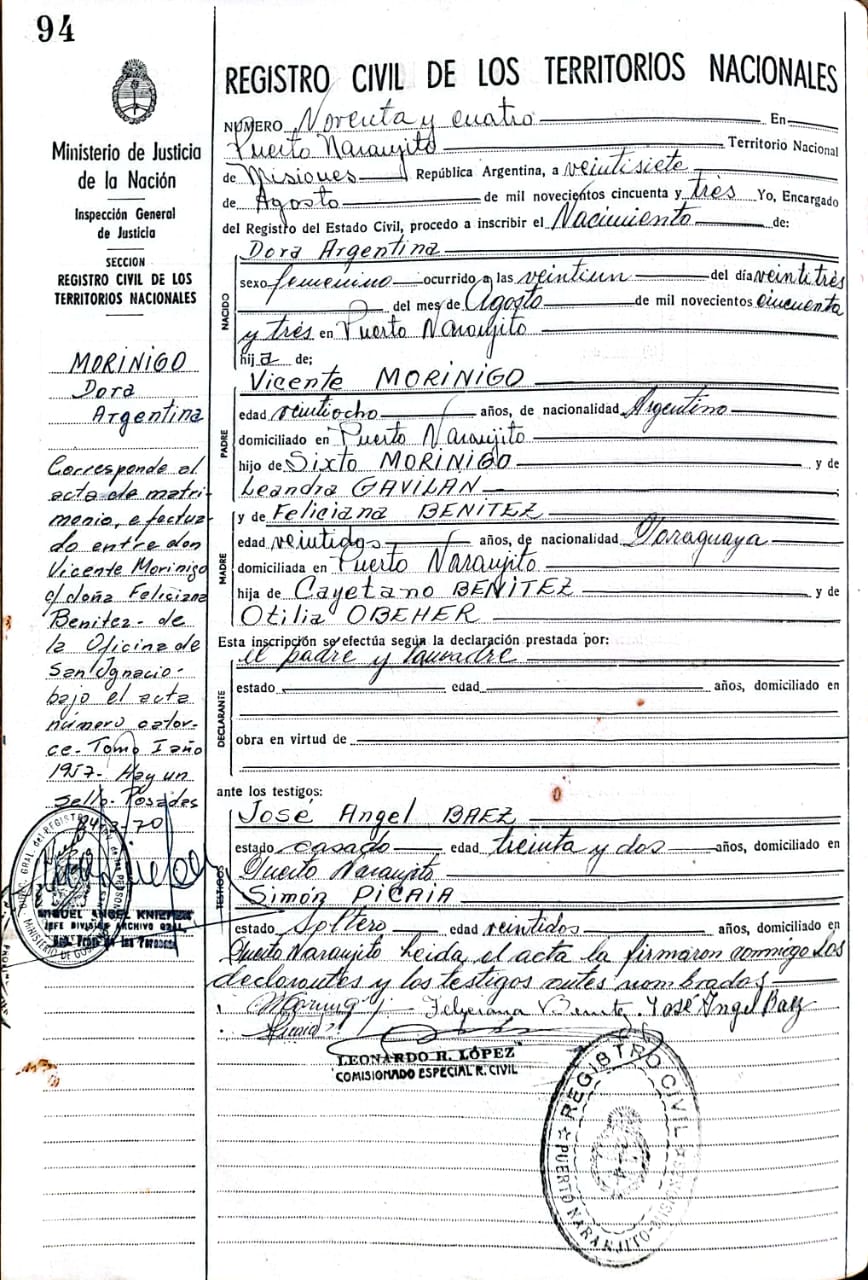 94
Ministerio de Justicia
de la Nación
Inspección General
de Justicia
SECCION
REGISTRO CIVIL DE LOS
TERRITORIOS NACIONALES
MORINIGO
Dora
Argentina
Corresponde al
acta de matri-
monio, efectua-
do entre don
Vicente Morinigo
c/ doña Feliciana
Benitez- de
la Oficina de
San Ignacio-
bajo el acta
número cator-
ce- Tomo I año
1957- Hay un
sello- Posadas
MIGUEL ANGEL
JEFE DIVISION ARCHIVO GRAL.
REGISTRO CIVIL DE LOS TERRITORIOS NACIONALES
NUMERO Noventa y cuatro En
Puerto Naranjito Territorio Nacional
de Misiones República Argentina, a veintisiete
de Agosto de mil novecientos cincuenta y tres Yo, Encargado
del Registro del Estado Civil, procedo a inscribir el Nacimiento de:
Dora Argentina
NACIDO
sexo femenino ocurrido a las veintiun del día veintitrés
del mes de Agosto de mil novecientos cincuenta
y tres en Puerto Naranjito
hija de;
Vicente MORINIGO
PADRE
edad veintiocho años, de nacionalidad Argentino
domiciliado en Puerto Naranjito
hijo de Sixto MORINIGO y de
Leandra GAVILAN
y de Feliciana BENITEZ
MADRE
edad veintidos años, de nacionalidad Paraguaya
domiciliada en Puerto Naranjito
hija de Cayetano BENITEZ y de
Otilia OBEHER
Esta inscripción se efectúa según la declaración prestada por:
el padre y la madre
DECLARANTE
estado edad años, domiciliado en
obra en virtud de
ante los testigos:
José Angel BAEZ
TESTIGOS
estado casado edad treinta y dos años, domiciliado en
Puerto Naranjito
Simón PICAIA
estado Soltero edad veintidos años, domiciliado en
Puerto Naranjito Leida el acta la firmaron conmigo los
declarantes y los testigos antes nombrados
José Angel Baez
LEONARDO R. LÓPEZ
COMISIONADO ESPECIAL R. CIVIL
REGISTRO CIVIL
PUERTO NARANJITO-MISIONES